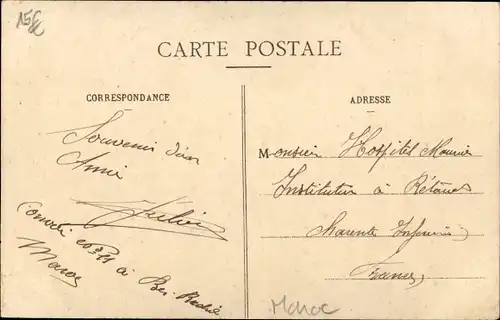 15€
CARTE POSTALE
CORRESPONDANCE
Souvenir d'un
Ami
Convoi à Ber-Rechid
Maroc
ADRESSE
Monsieur Hospitel Maurice
Instituteur à
Charente Inférieure
France
Maroc